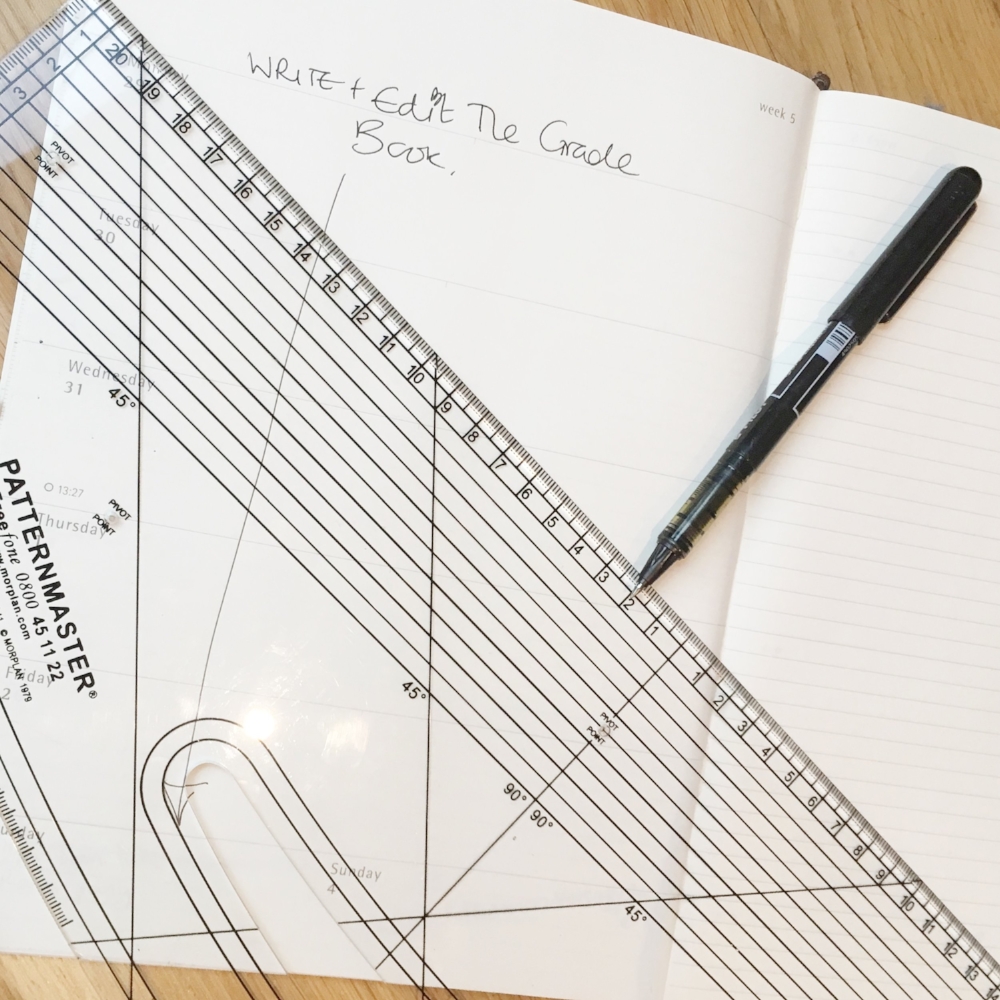 WRITE + Edit The Grade
Book.
week 5
Monday
29
Tuesday
30
Wednesday
31
13:27
Thursday
Friday
2
Sunday
4
PATTERNMASTER®
Freefone 0800 45 11 22
www.morplan.com
© MORPLAN 1979
PIVOT
POINT
PIVOT
POINT
PIVOT
POINT
45°
45°
90° 90°
45°
1 2 3
20 19 18 17 16 15 14 13 12 11 10 9 8 7 6 5 4 3 2 1
1 2 3 4 5 6 7 8 9 10 11 12 13